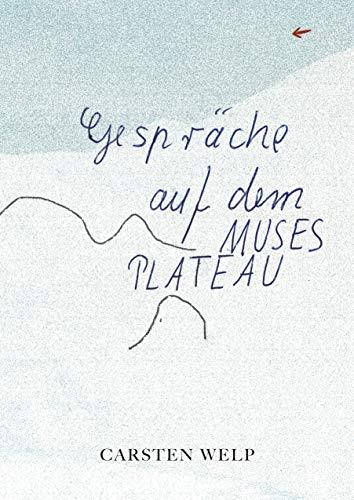 Gespräche
auf dem
MUSES
PLATEAU
CARSTEN WELP